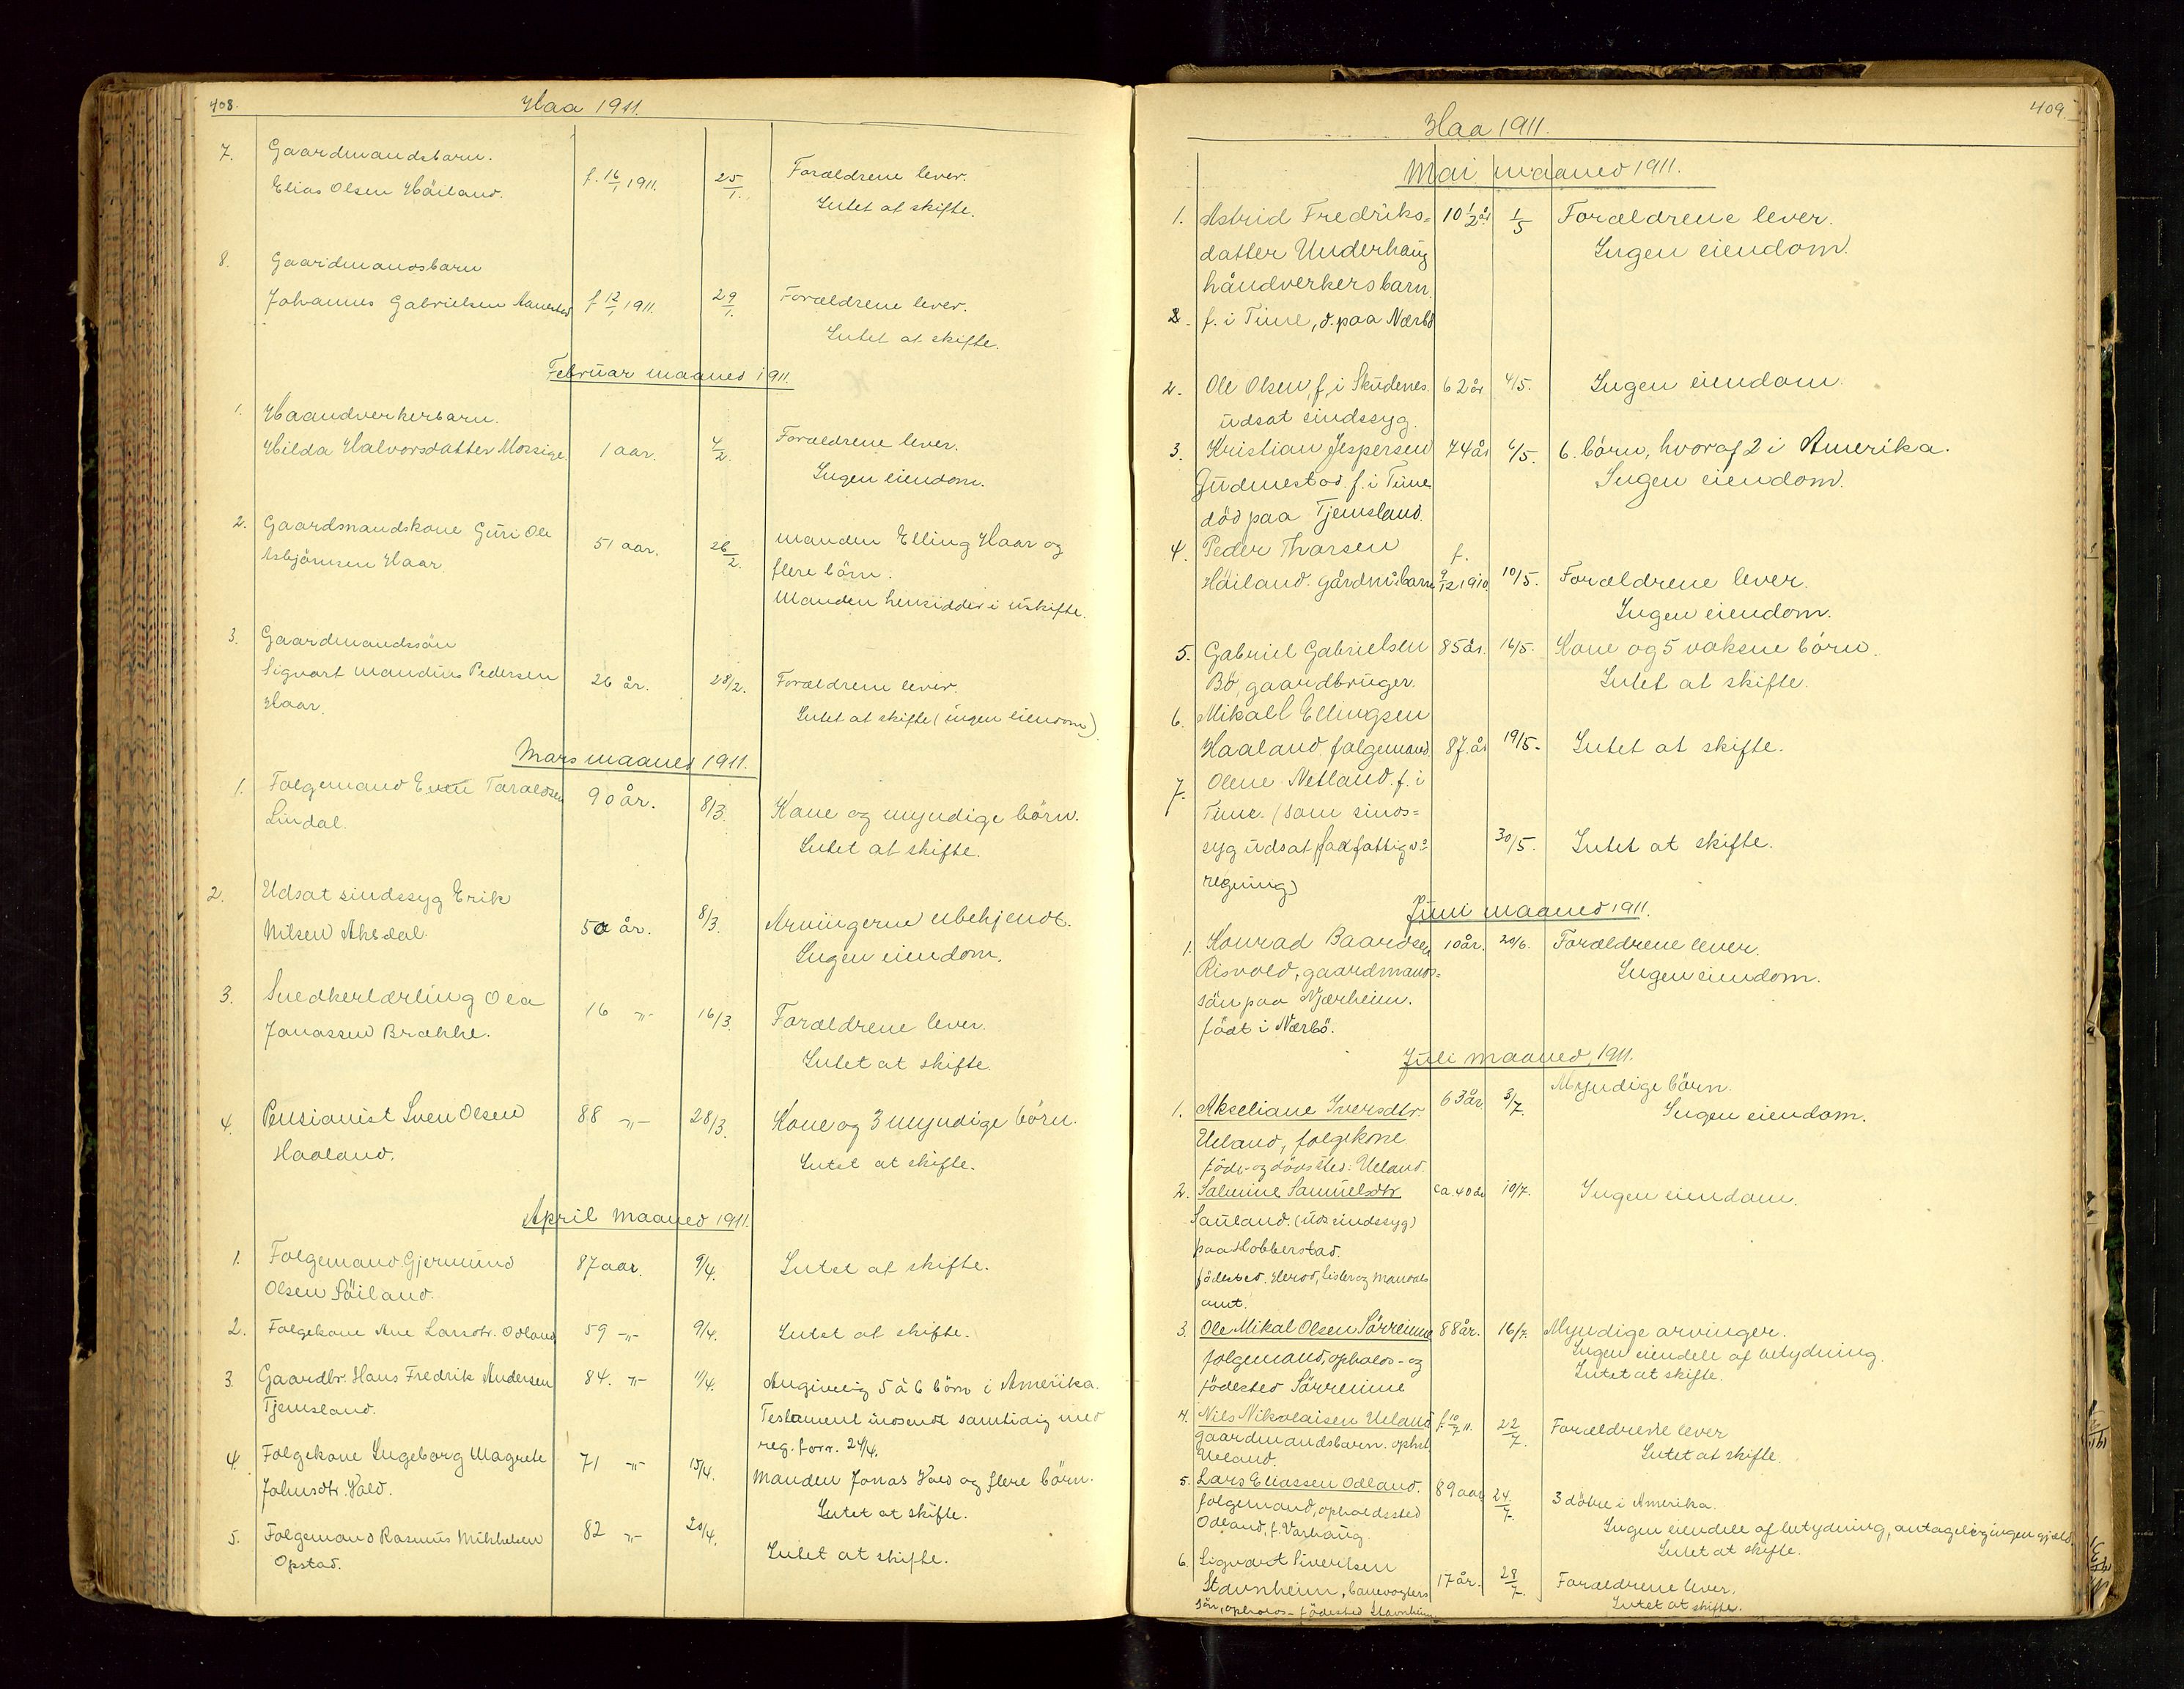 408.
Haa 1911.
7. Gaardmandsbarn.
Elias Olsen Höiland. f. 16/1 1911. 25/1. Forældrene lever.
Intet at skifte.
8. Gaardmandsbarn
Johannes Gabrielsen Aanestad f 12/1 1911. 29/1. Forældrene lever.
Intet at skifte.
Februar maaned 1911.
1. Haandverkerbarn.
Hilda Halvorsdatter Mossige. 1 aar. 4/2. Forældrene lever.
Ingen eiendom.
2. Gaardmandskone Guri Ole
Asbjörnsen Haar. 51 aar. 26/2. manden Elling Haar og
flere börn.
Manden hensidder i uskifte.
3. Gaardmandssön
Sigvart Mandius Pedersen 26 år. 28/2. Forældrene lever.
Haar. Intet at skifte (ingen eiendom)
Mars maaned 1911.
1. Folgemand Even Taraldsen 90 år. 8/3. Kone og myndige börn.
Lindal. Intet at skifte.
2. Udsat sindssyg Erik
Nilsen Ahsdal. 50 år. 8/3. Arvingerne ubekjendt.
Ingen eiendom.
3. Snedkerlærling Ola
Jonassen Brække. 16 -"- 16/3. Forældrene lever.
Intet at skifte.
4. Pensionist Sven Olsen 88 -"- 28/3. Kone og 3 myndige börn.
Haaland. Intet at skifte.
April maaned 1911.
1. Folgemand Gjermund 87 aar. 9/4. Intet at skifte.
Olsen Söiland.
2. Folgekone Ane Larsdtr. Odland 59 -"- 9/4. Intet at skifte.
3. Gaardbr. Hans Fredrik Andersen 84. -"- 11/4. Angivelig 5 à 6 börn i Amerika.
Tjemsland. Testament indsendt samtidig med
reg. forr. 24/4.
4. Folgekone Ingeborg Magrete 71 -"- 15/4. Manden Jonas Vold og flere börn.
Johnsdtr. Vold. Intet at skifte.
5. Folgemand Rasmus Mikkelsen 82 -"- 20/4. Intet at skifte.
Opstad.
409.
Haa 1911.
Mai maaned 1911.
1. Astrid Fredriks= 10 1/2 år 1/5 Forældrene lever.
datter Underhaug Ingen eiendom.
håndverkersbarn.
f. i Time, d. paa Nærbö
2. Ole Olsen, f. i Skudenes. 62 år 4/5. Ingen eiendom.
udsat sindssyg.
3. Kristian Jespersen 74 år 6/5. 6. börn, hvoraf 2 i Amerika.
Gudmestad. f. i Time Ingen eiendom.
död paa Tjemsland.
4. Peder Thorsen f.
Höiland. gårdm.barn 9/12 1910. 10/5. Forældrene lever.
Ingen eiendom.
5. Gabriel Gabrielsen 85 år. 16/5. Kone og 5 voksne börn.
Bö, gaardbruger. Intet at skifte.
6. Mikall Ellingsen
Haaland, folgemand. 87 år 19/5- Intet at skifte.
7. Olene Netland. f. i
Time. (som sinds=
syg udsat paa fattigv= 30/5. Intet at skifte.
regning)
Juni maaned 1911.
1. Konrad Baardsen 10 år. 20/6. Forældrene lever.
Risvold, gaardmands= Ingen eiendom.
sön paa Njærheim.
födt i Nærbö.
Juli maaned, 1911.
1. Akseliane Iversdtr. 63 år 3/7. Myndige börn.
Ueland, folgekone Ingen eiendom.
föde- og dödssted: Ueland.
2. Salmine Samuelsdtr. ca. 40 år 10/7. Ingen eiendom.
Sauland. (uds. sindssyg)
paa Hobberstad.
födested. Herod, Lister og Mandals
amt.
3. Ole Mikal Olsen Sörreime 88 år. 16/7. Myndige arvinger.
folgemand, opholds- og Ingen eiendele af betydning.
födested Sörreime Intet at skifte.
4. Nils Nikolaisen Ueland f. 10/7 11. 22/7. Forældrene lever
gaardmandsbarn. ophst. Intet at skifte.
Ueland.
5. Lars Eliassen Odland. 89 aar 24/7. 3 döbre i Amerika.
folgemand, opholdssted Ingen eiendele af betydning, antagelig ingen gjæld.
Odland, f. Varhaug. Intet at skifte.
6. Sigvart Sivertsen
Stavnheim, banevogters 17 år. 28/7. Forældrene lever.
sön, opholds- födested Stavnheim Intet at skifte.